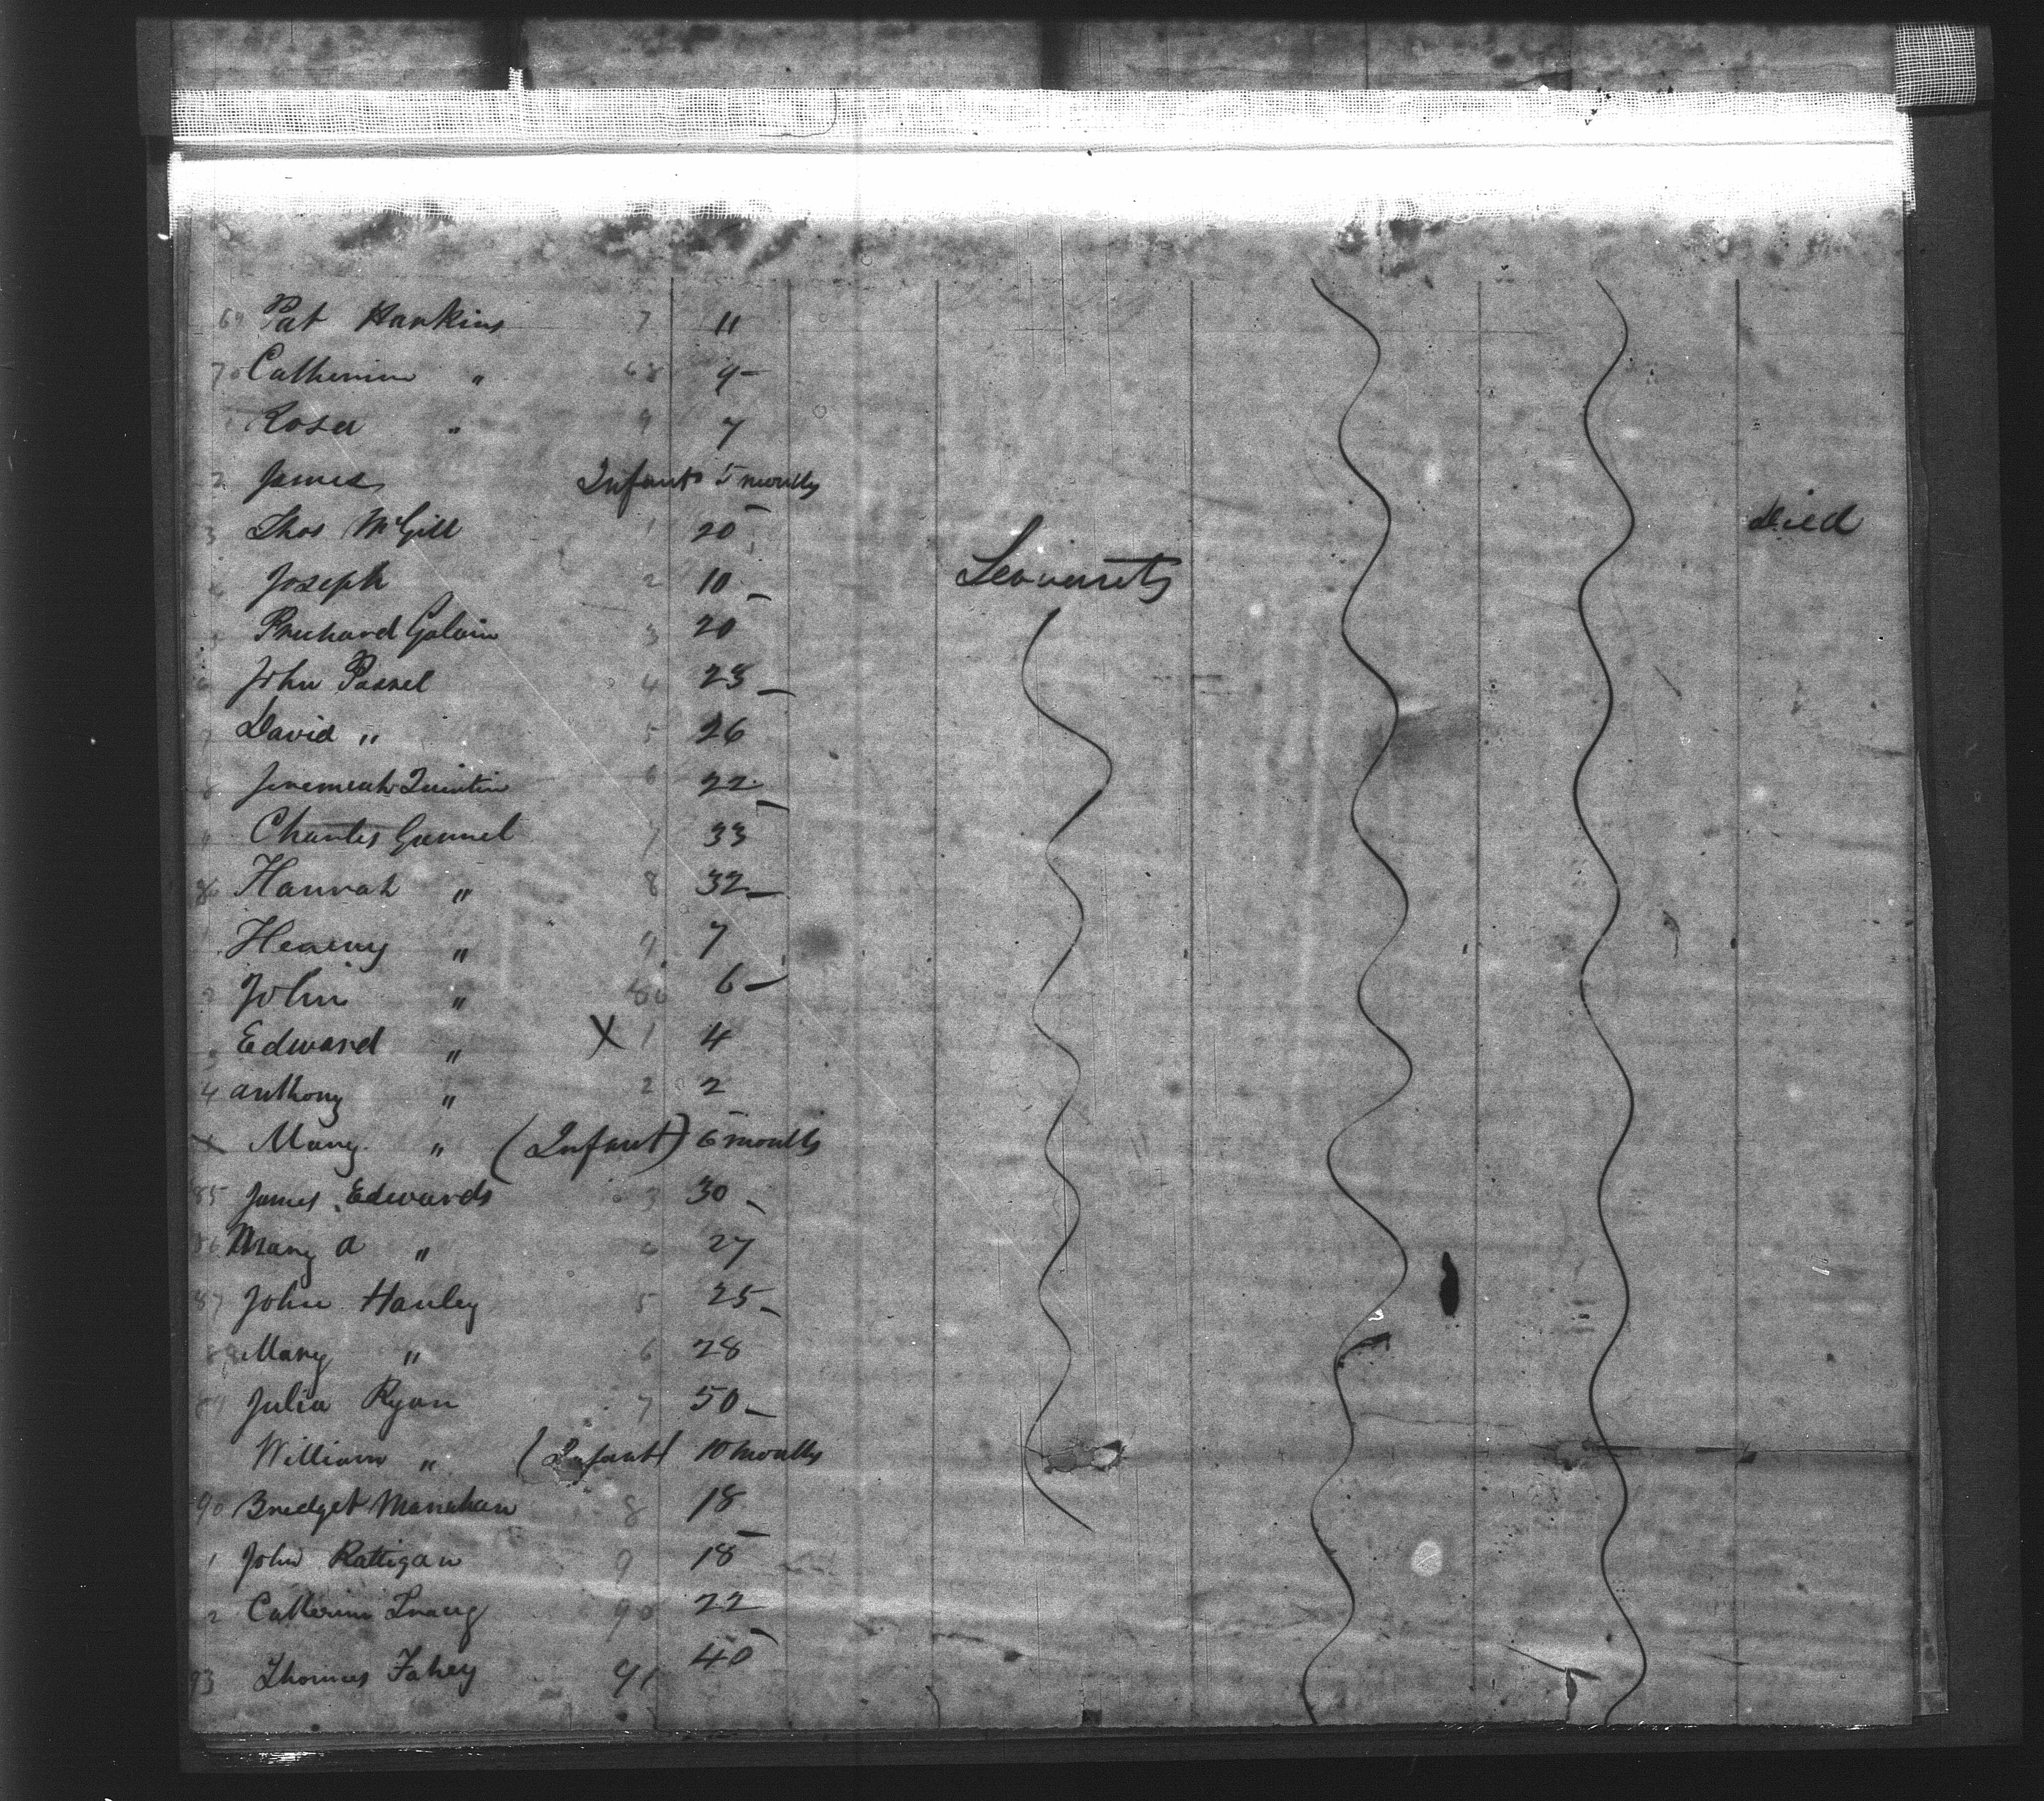 69 Pat Harkins 7 11
70 Catherine " 68 9-
Rosa " 9 7
2 James Infant 5 months
3 Thos McGill 1 20 Died
4 Joseph 2 10 - Servants
Richard Galvin 3 20
6 John Possel 4 23 -
7 David " 5 26
8 Jeremiah Quintin 6 22
Charles Gunnel 7 33
80 Hannah " 8 32 -
" 9 7
2 John " 80 6 -
3 Edward " X 1 4
4 anthony " 2 2
X Mary " (Infant) 6 months
85 James Edwards 3 30 -
86 Mary A " 4 27
87 John Hanley 5 25 -
88 Mary " 6 28
89 Julia Ryan 7 50 -
William " (Infant) 10 months
90 Bridget Manahan 8 18
1 John Rattigan 9 18
2 Catherine 90 22
93 Thomas Fahey 91 40